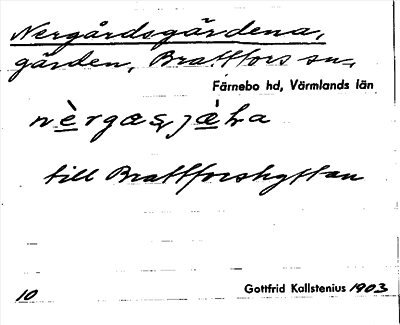 Nergårdsgärdena,
gården, Brattfors sn.
Färnebo hd, Värmlands län
till Brattforshyttan
10
Gottfrid Kallstenius 1903